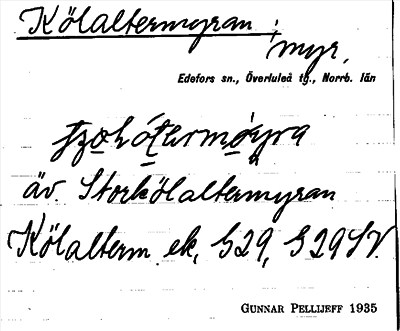 Kölaltermyran;
myr,
Edefors sn., Överluleå tg., Norrb. län
äv. Storkölaltermyran
Kölalterm. ek, S29, S29SV.
GUNNAR PELLIJEFF 1935